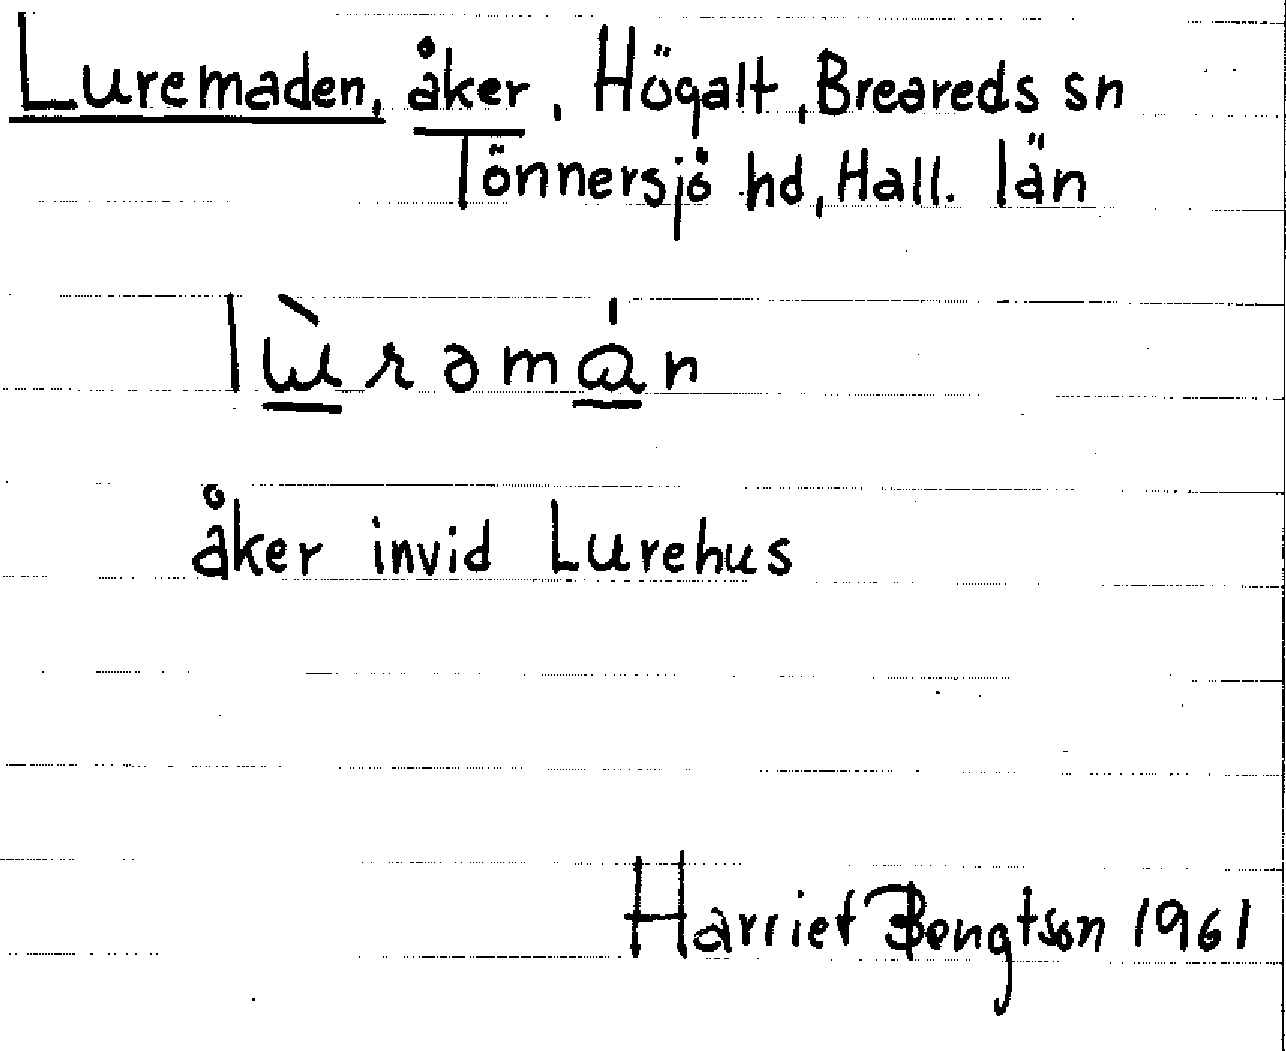 Luremaden, åker, Högalt, Breareds sn
Tönnersjö hd, Hall. län
lɯ̀rəmán
åker invid Lurehus
Harriet Bengtson 1961